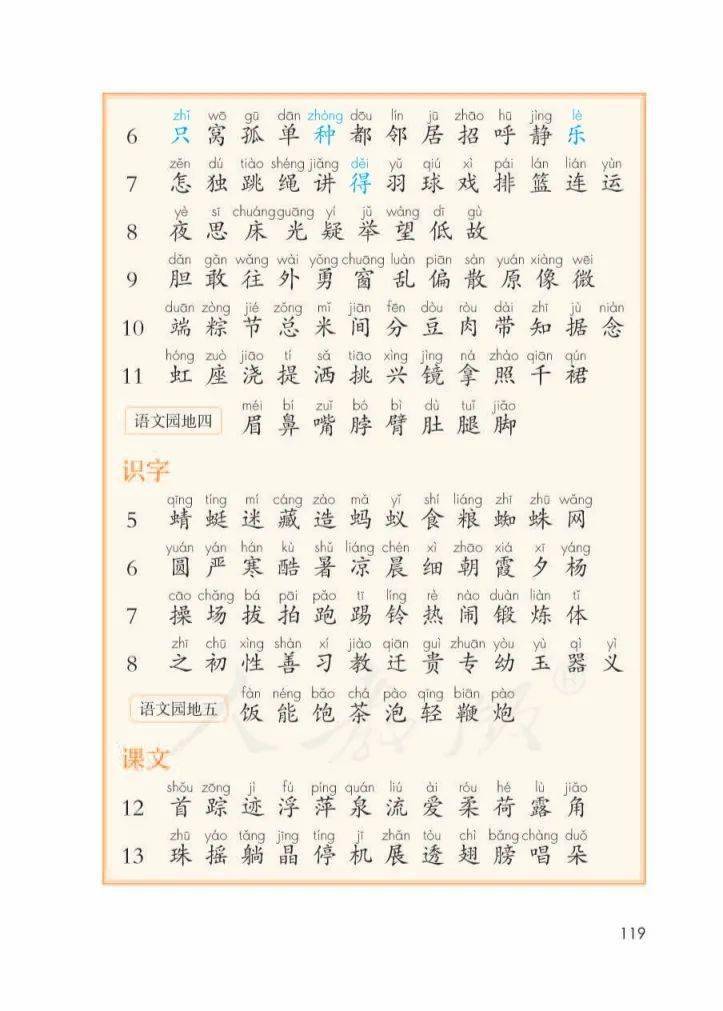 zhǐ wō gū dān zhòng dōu lín jū zhāo hū jìng lè
6 只 窝 孤 单 种 都 邻 居 招 呼 静 乐
zěn dú tiào shéng jiǎng děi yǔ qiú xì pái lán lián yùn
7 怎 独 跳 绳 讲 得 羽 球 戏 排 篮 连 运
yè sī chuáng guāng yí jǔ wàng dī gù
8 夜 思 床 光 疑 举 望 低 故
dǎn gǎn wǎng wài yǒng chuāng luàn piān sàn yuán xiàng wēi
9 胆 敢 往 外 勇 窗 乱 偏 散 原 像 微
duān zòng jié zǒng mǐ jiān fēn dòu ròu dài zhī jù niàn
10 端 粽 节 总 米 间 分 豆 肉 带 知 据 念
hóng zuò jiāo tí sǎ tiāo xìng jìng ná zhào qiān qún
11 虹 座 浇 提 洒 挑 兴 镜 拿 照 千 裙
méi bí zuǐ bó bì dù tuǐ jiǎo
语文园地四 眉 鼻 嘴 脖 臂 肚 腿 脚
识字
qīng tíng mí cáng zào mǎ yǐ shí liáng zhī zhū wǎng
5 蜻 蜓 迷 藏 造 蚂 蚁 食 粮 蜘 蛛 网
yuán yán hán kù shǔ liáng chén xì zhāo xiá xī yáng
6 圆 严 寒 酷 暑 凉 晨 细 朝 霞 夕 杨
cāo chǎng bá pāi pǎo tī líng rè nào duàn liàn tǐ
7 操 场 拔 拍 跑 踢 铃 热 闹 锻 炼 体
zhī chū xìng shàn xí jiào qiān guì zhuān yòu yù qì yì
8 之 初 性 善 习 教 迁 贵 专 幼 玉 器 义
fàn néng bǎo chá pào qīng biān pào
语文园地五 饭 能 饱 茶 泡 轻 鞭 炮
课文
shǒu zōng jì fú píng quán liú ài róu hé lù jiǎo
12 首 踪 迹 浮 萍 泉 流 爱 柔 荷 露 角
zhū yáo tǎng jīng tíng jī zhǎn tòu chì bǎng chàng duǒ
13 珠 摇 躺 晶 停 机 展 透 翅 膀 唱 朵
119